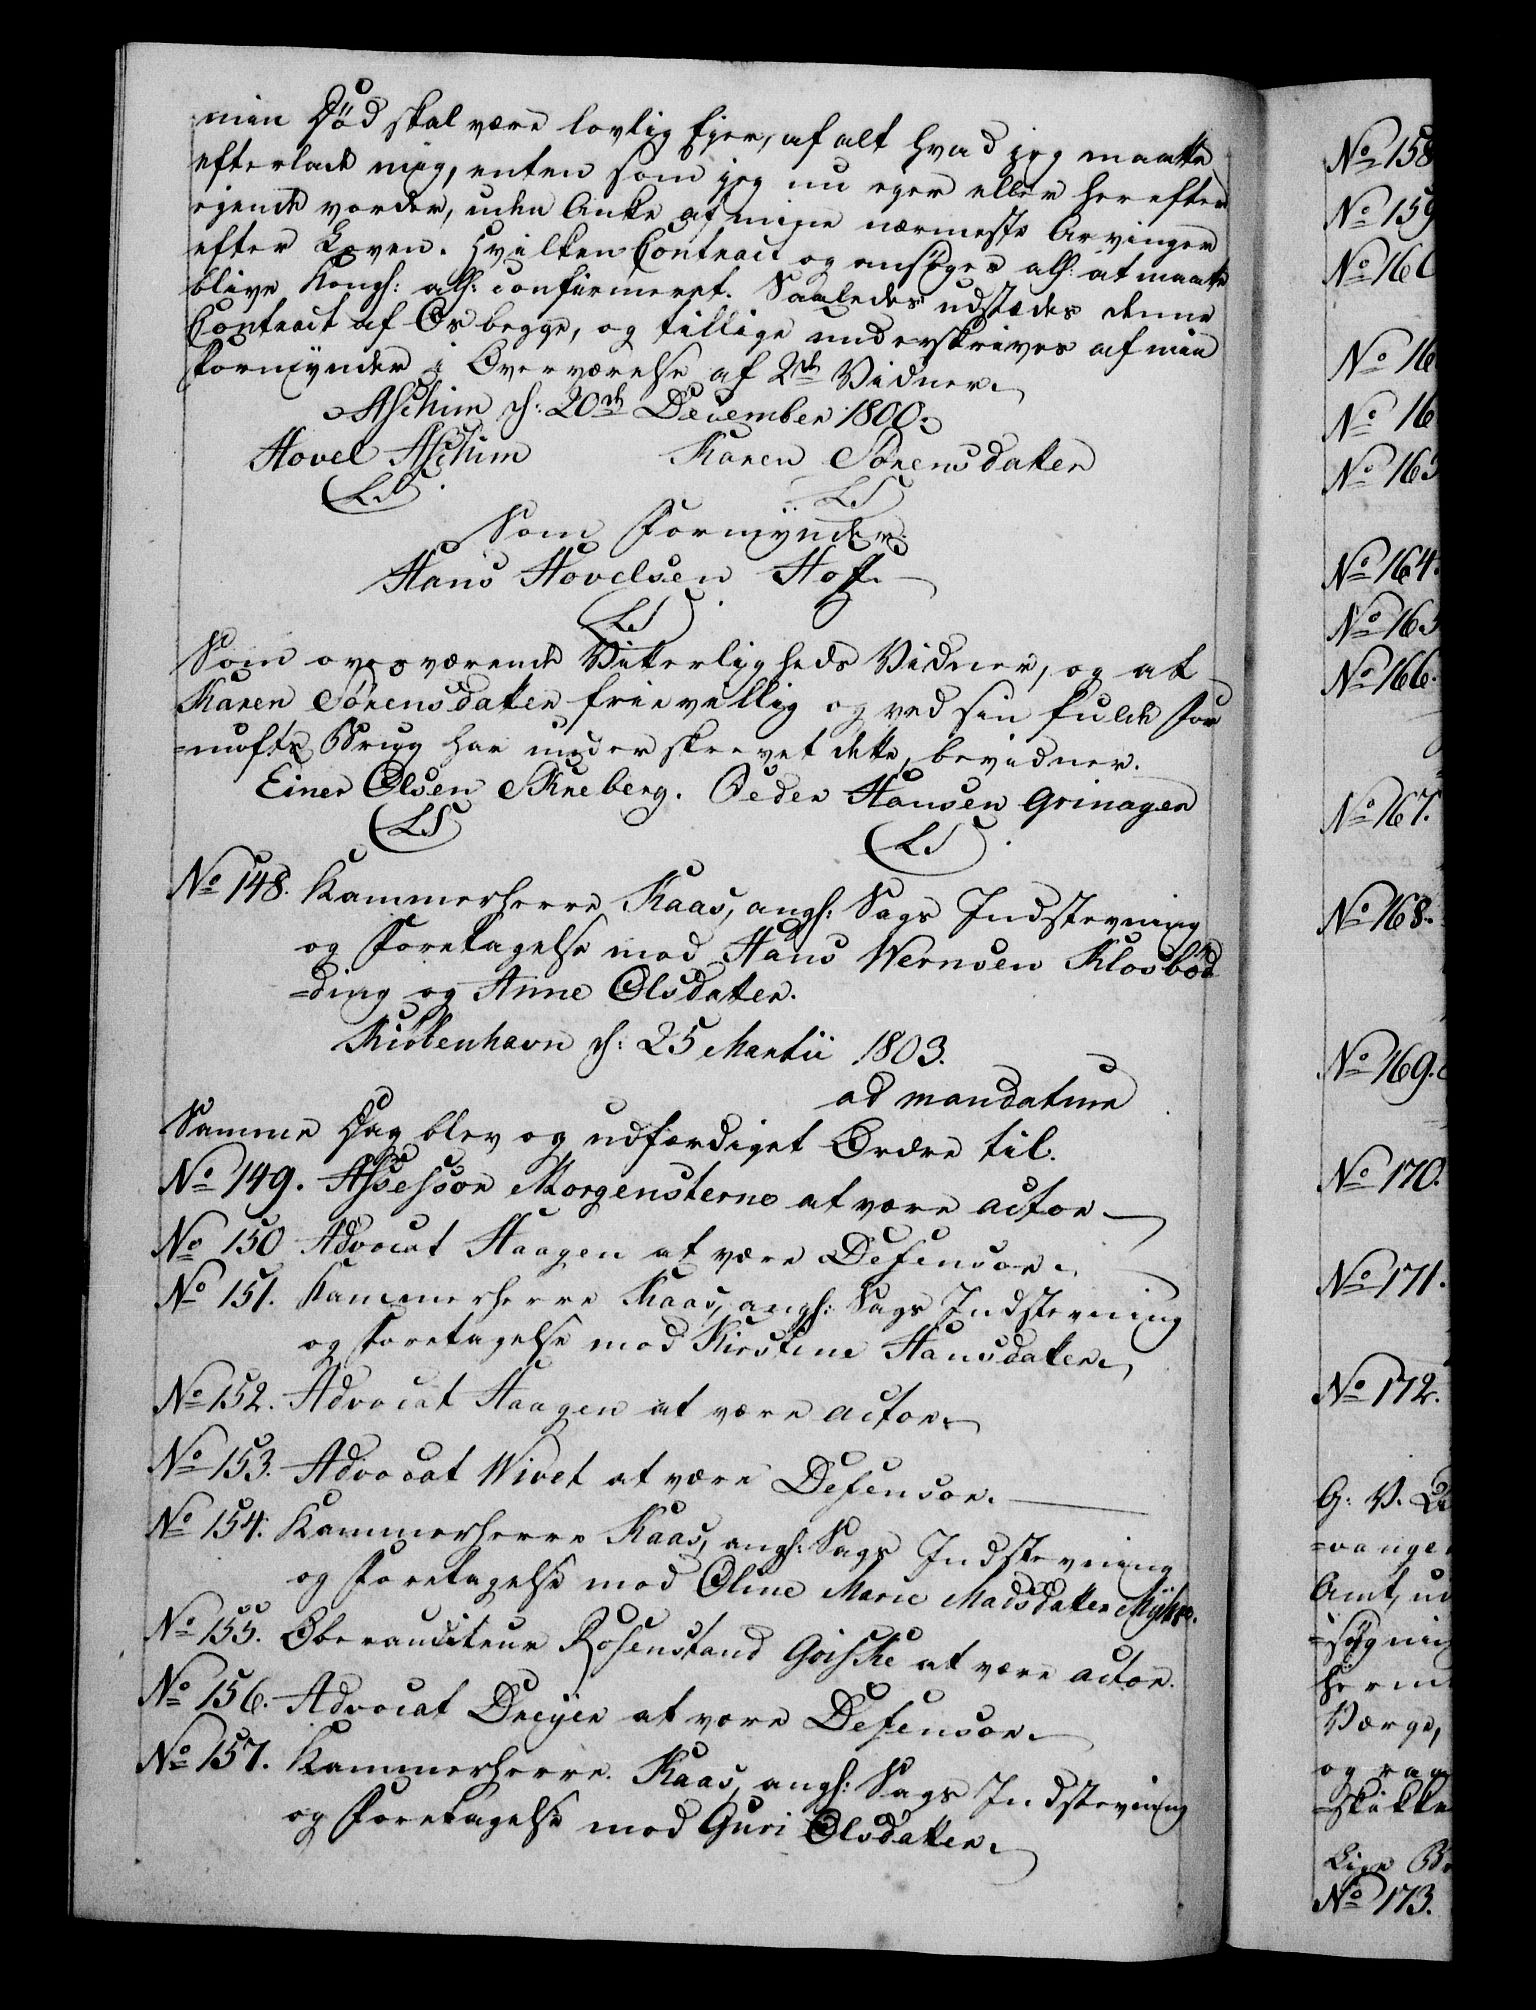 min Død skal være lovlig Ejer, af alt hvad jeg maatte
efterlade mig, enten som jeg nu eger eller herefter
egende vorder, uden Anke af mine nærmeste Arvinger
efter Loven. Hvilken Contract og ansøges alh: at maatte
blive Kongl: allh: confirmeret. Saaledes udstædes denne
Contract af Os begge, og tillige underskrives af min
Formynder i Overværelse af 2de Vidner.
Aschim d: 20de December 1800.
Hovel Aschim Karen Sørensdatter
(LS) (LS)
Som Formynder.
Hans Hovelsen Hof.
(LS)
Som overværende Vitterligheds Vidner, og at
Karen Sørensdatter frievillig og ved sin fulde For
=nufts Brug har underskrevet dette, bevidner.
Einer Olsen Skreberg. Peder Hansen Grinager
(LS) (LS)
No 148. Kammerherre Kaas, angl: Sags Indstevning
og Foretagelse mod Hans Wernsen Klosbød
=ding og Anne Olsdatter.
Kiøbenhavn d: 25 Martii 1803.
ad mandatum
Samme Dag blev og udfærdiget Ordre til.
No 149. Assessor Morgenstierne at være actor
No 150 Advocat Haagen at være Defensor.
No 151. Kammerherre Kaas, angl: Sags Indstevning
og Foretagelse mod Kirstine Hansdatter.
No 152. Advocat Haagen at være actor.
No 153. Advocat Wivet at være Defensor.
No 154. Kammerherre Kaas, angl: Sags Indstevning
og Foretagelse mod Oline Marie Madsdatter
No 155. Oberauditeur Rosenstand Goiske at være actor.
No 156. Advocat Dreyer at være Defensor.
No 157. Kammerherre Kaas, angl: Sags Indstevning
og Foretagelse mod Guri Olsdatter.
No 158
No 159
No 160
No 16
No 16
No 163
No 164.
No 165
No 166.
No 167.
No 168.
No 169.
No 170.
No 171.
No 172.
G: V.
=vange
Amt, ud
=søgning
Værge,
og
=skikke
Lige
No 173.